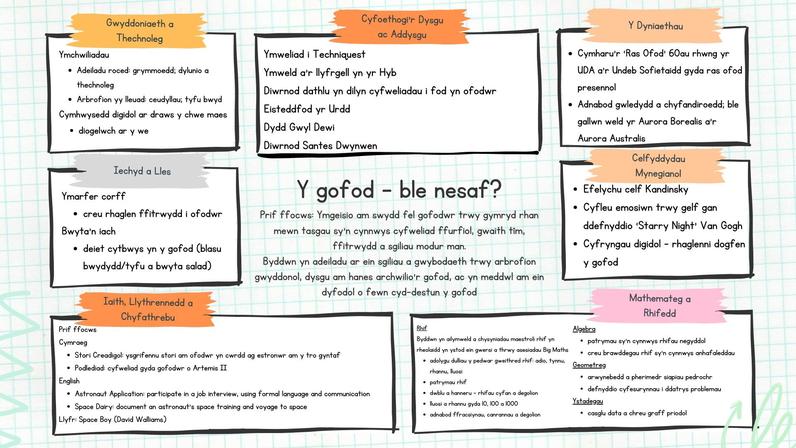 Gwyddoniaeth a
Thechnoleg
Ymchwiliadau
Adeiladu roced: grymmoedd; dylunio a
thechnoleg
Arbrofion yy lleuad: ceudyllau; tyfu bwyd
Cymhwysedd digidol ar draws y chwe maes
diogelwch ar y we
Cyfoethogi'r Dysgu
ac Addysgu
Ymweliad i Techniquest
Ymweld a'r llyfrgell yn yr Hyb
Diwrnod dathlu yn dilyn cyfweliadau i fod yn ofodwr
Eisteddfod yr Urdd
Dydd Gwyl Dewi
Diwrnod Santes Dwynwen
Y Dyniaethau
Cymharu'r 'Ras Ofod' 60au rhwng yr
UDA a'r Undeb Sofietaidd gyda ras ofod
presennol
Adnabod gwledydd a chyfandiroedd; ble
gallwn weld yr Aurora Borealis a'r
Aurora Australis
Iechyd a Lles
Ymarfer corff
creu rhaglen ffitrwydd i ofodwr
Bwyta'n iach
deiet cytbwys yn y gofod (blasu
bwydydd/tyfu a bwyta salad)
Y gofod - ble nesaf?
Prif ffocws: Ymgeisio am swydd fel gofodwr trwy gymryd rhan
mewn tasgau sy'n cynnwys cyfweliad ffurfiol, gwaith tîm,
ffitrwydd a sgiliau modur man.
Byddwn yn adeiladu ar ein sgiliau a gwybodaeth trwy arbrofion
gwyddonol, dysgu am hanes archwilio'r gofod, ac yn meddwl am ein
dyfodol o fewn cyd-destun y gofod
Celfyddydau
Mynegianol
Efelychu celf Kandinsky
Cyfleu emosiwn trwy gelf gan
ddefnyddio 'Starry Night' Van Gogh
Cyfryngau digidol - rhaglenni dogfen
y gofod
Iaith, Llythrennedd a
Chyfathrebu
Prif ffocws
Cymraeg
Stori Creadigol: ysgrifennu stori am ofodwr yn cwrdd ag estronwr am y tro gyntaf
Podlediad: cyfweliad gyda gofodwr o Artemis II
English
Astronaut Application: participate in a job interview, using formal language and communication
Space Dairy: document an astronaut's space training and voyage to space
Llyfr: Space Boy (David Walliams)
Mathemateg a
Rhifedd
Rhif
Byddwn yn ailymweld a chysyniadau maestroli rhif yn
rheolaidd yn ystod ein gwersi a thrwy asesiadau Big Maths
adolygu dulliau y pedwar gweithred rhif: adio, tynnu,
rhannu, lluosi
patrymau rhif
dwblu a hanneru - rhifau cyfan a degolion
lluosi a rhannu gyda 10, 100 a 1000
adnabod ffracsiynau, canrannau a degolion
Algebra
patrymau sy'n cynnwys rhifau negyddol
creu brawddegau rhif sy'n cynnwys anhafaleddau
Geometreg
arwynebedd a pherimedr siapiau pedrochr
defnyddio cyfesurynnau i ddatrys problemau
Ystadegau
casglu data a chreu graff priodol